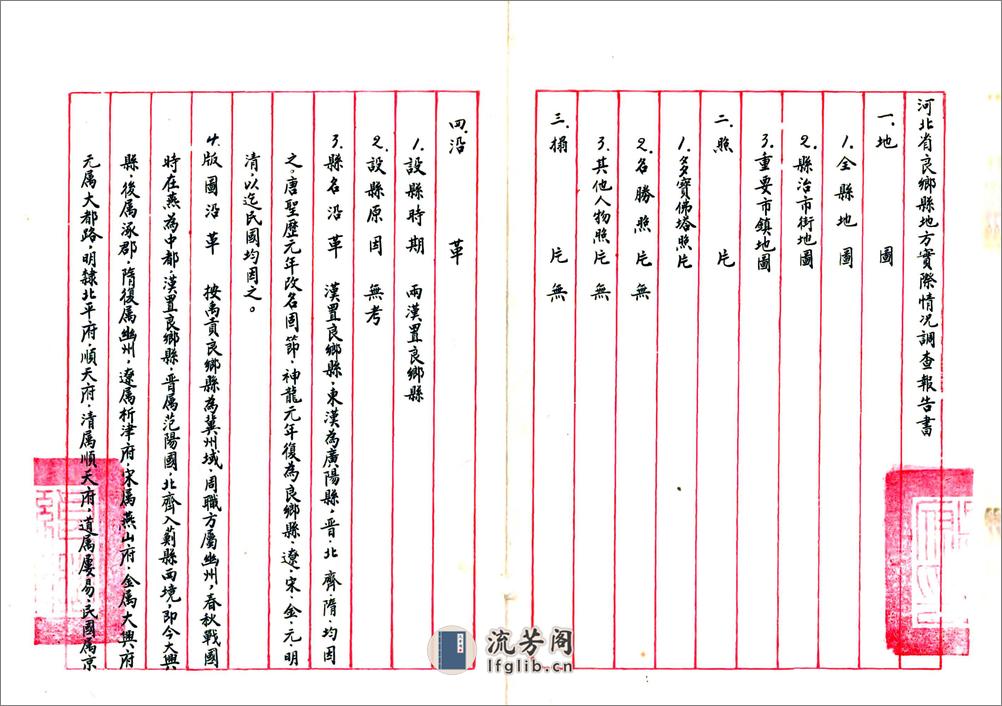 河北省良鄉縣地方實際情况調查報告書
一.地圖
1.全縣地圖
2.縣治市街地圖
3.重要市鎮地圖
二.照片
1.多寳佛塔照片
2.名勝照片無
3.其他人物照片無
三.搨片無
四.沿革
1.設縣時期 兩漢置良鄉縣
2.設縣原因 無考
3.縣名沿革 漢置良鄉縣，東漢為廣陽縣，晋.北齊.隋.均因
之，唐聖歷元年改名固節，神龍元年復為良鄉縣，遼.宋.金.元.明
清，以迄民國均因之。
4.版圖沿革 按禹貢良鄉縣為冀州域，周職方屬幽州，春秋戰國
時在燕為中都，漢置良鄉縣，晋属范陽國，北齊入薊縣西境，即今大興
縣，後属涿郡，隋復属幽州，遼属析津府，宋属燕山府，金属大興府
元属大都路，明隸北平府，順天府，清属順天府，道属屡易，民國属京
流芳阁
lfglib.cn